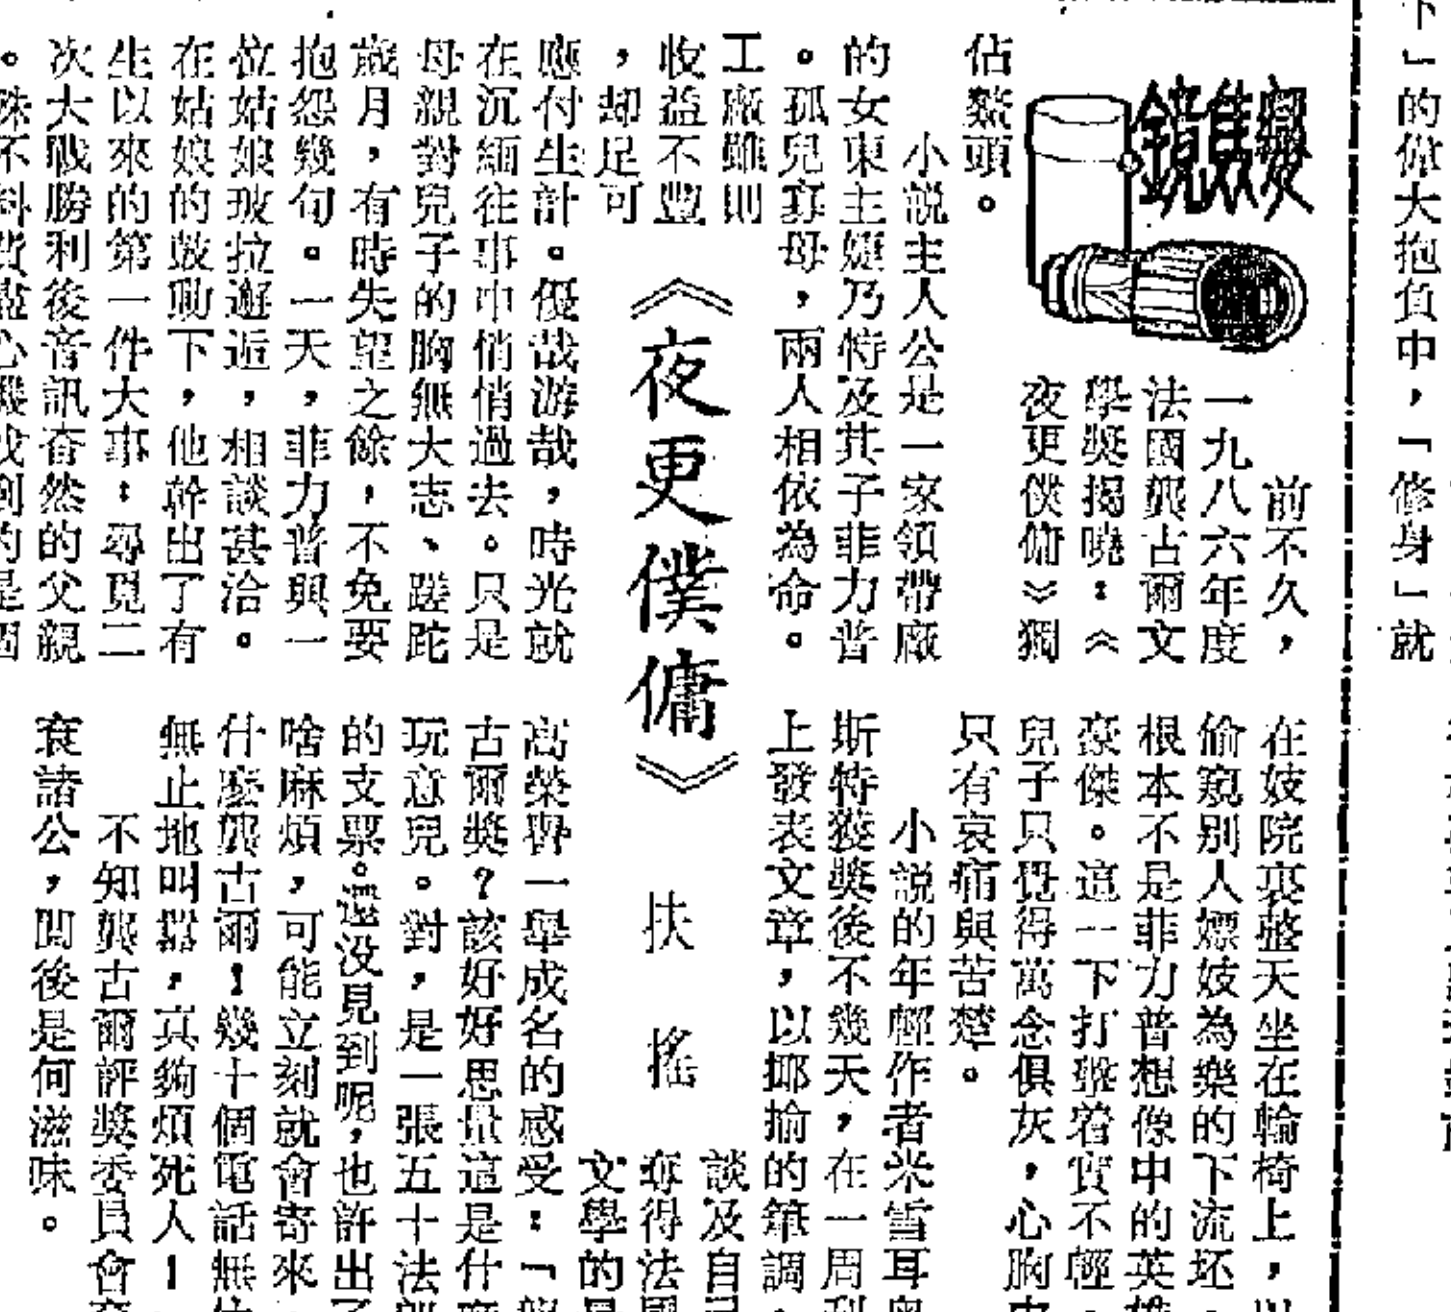 下」的偉大抱負中,「修身」就
變焦鏡
前不久,
一九八六年度
法國龔古爾文
學獎揭曉:《
夜更僕傭》獨
佔鰲頭。
小說主人公是一家領帶廠
的女東主乃特及其子菲力普
。孤兒寡母,兩人相依為命。
工廠雖則
收益不豐
,却足可
應付生計。優哉游哉,時光就
在沉緬往事中悄悄過去。只是
母親對兒子的胸無大志、蹉跎
歲月,有時失望之餘,不免要
抱怨幾句。一天,菲力普與一
位姑娘玻拉邂逅,相談甚洽。
在姑娘的鼓動下,他幹出了有
生以來的第一件大事:尋覓二
次大戰勝利後音訊杳然的父親
。殊不料費盡心機找到的是個
《夜更僕傭》
扶搖
在妓院裏整天坐在輪椅上,以
偷窺別人嫖妓為樂的下流坯。
根本不是菲力普想像中的英雄
豪傑。這一下打擊着實不輕。
兒子只覺得萬念俱灰,心胸中
只有哀痛與苦楚。
小說的年輕作者米雪耳奧
斯特獲獎後不幾天,在一周刊
上發表文章,以揶揄的筆調,
談及自己
奪得法國
文學的最
高榮譽一舉成名的感受:「龔
古爾獎?該好好思量這是什麼
玩意兒。對,是一張五十法郎
的支票。還没見到呢,也許出了
啥麻煩,可能立刻就會寄來。
什麼龔古爾!幾十個電話無休
無止地叫囂,真夠煩死人!
不知龔古爾評獎委員會袞
袞諸公,聞後是何滋味。